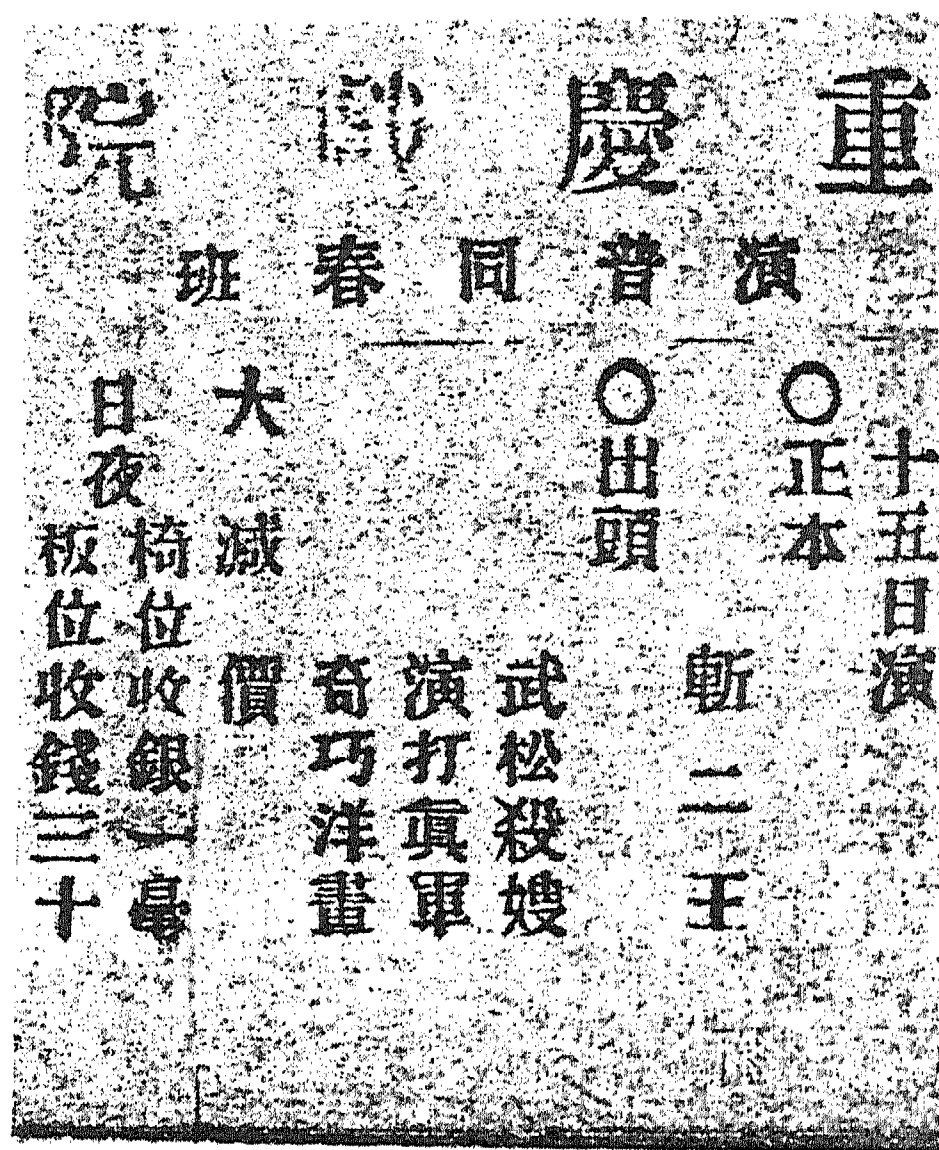 重慶戲院
演普同春班
十五日演
○正本
斬二王
○出頭
武松殺嫂
演打真軍
奇巧洋畫
大減價
日夜
椅位收銀一毫
板位收錢三十